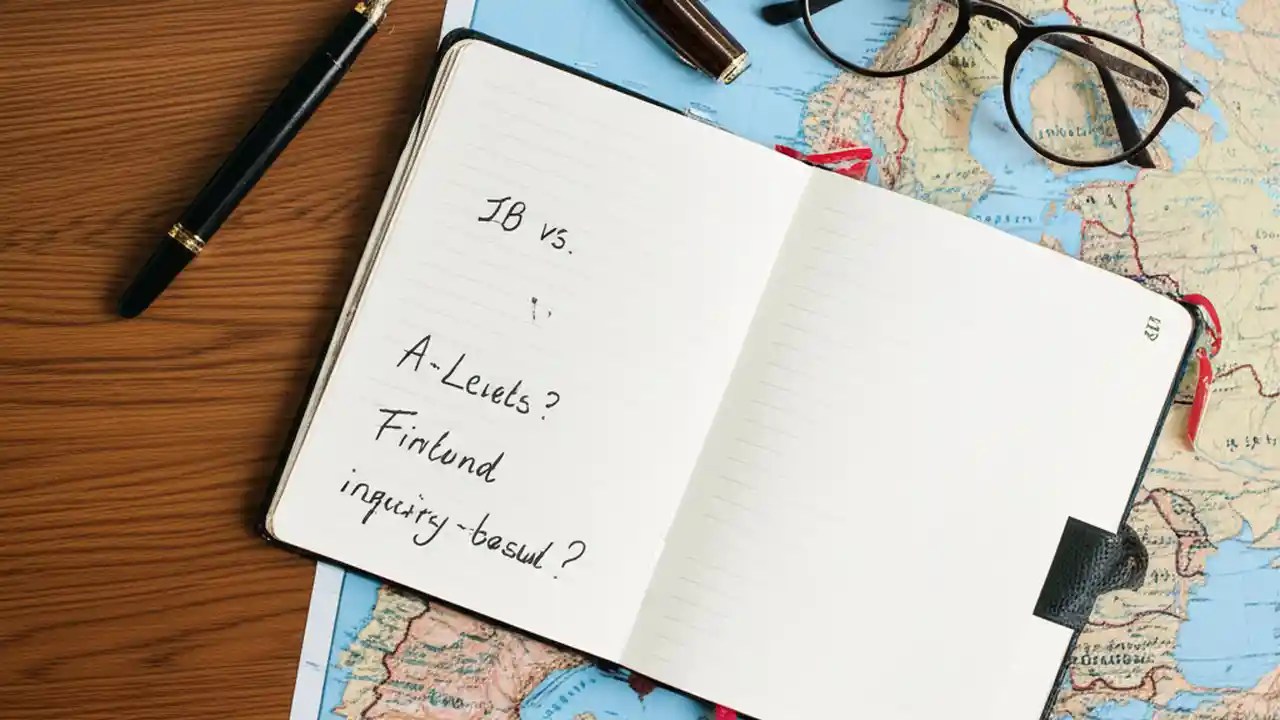 IB vs.
A-Levels?
Finlund
inquiry-based?